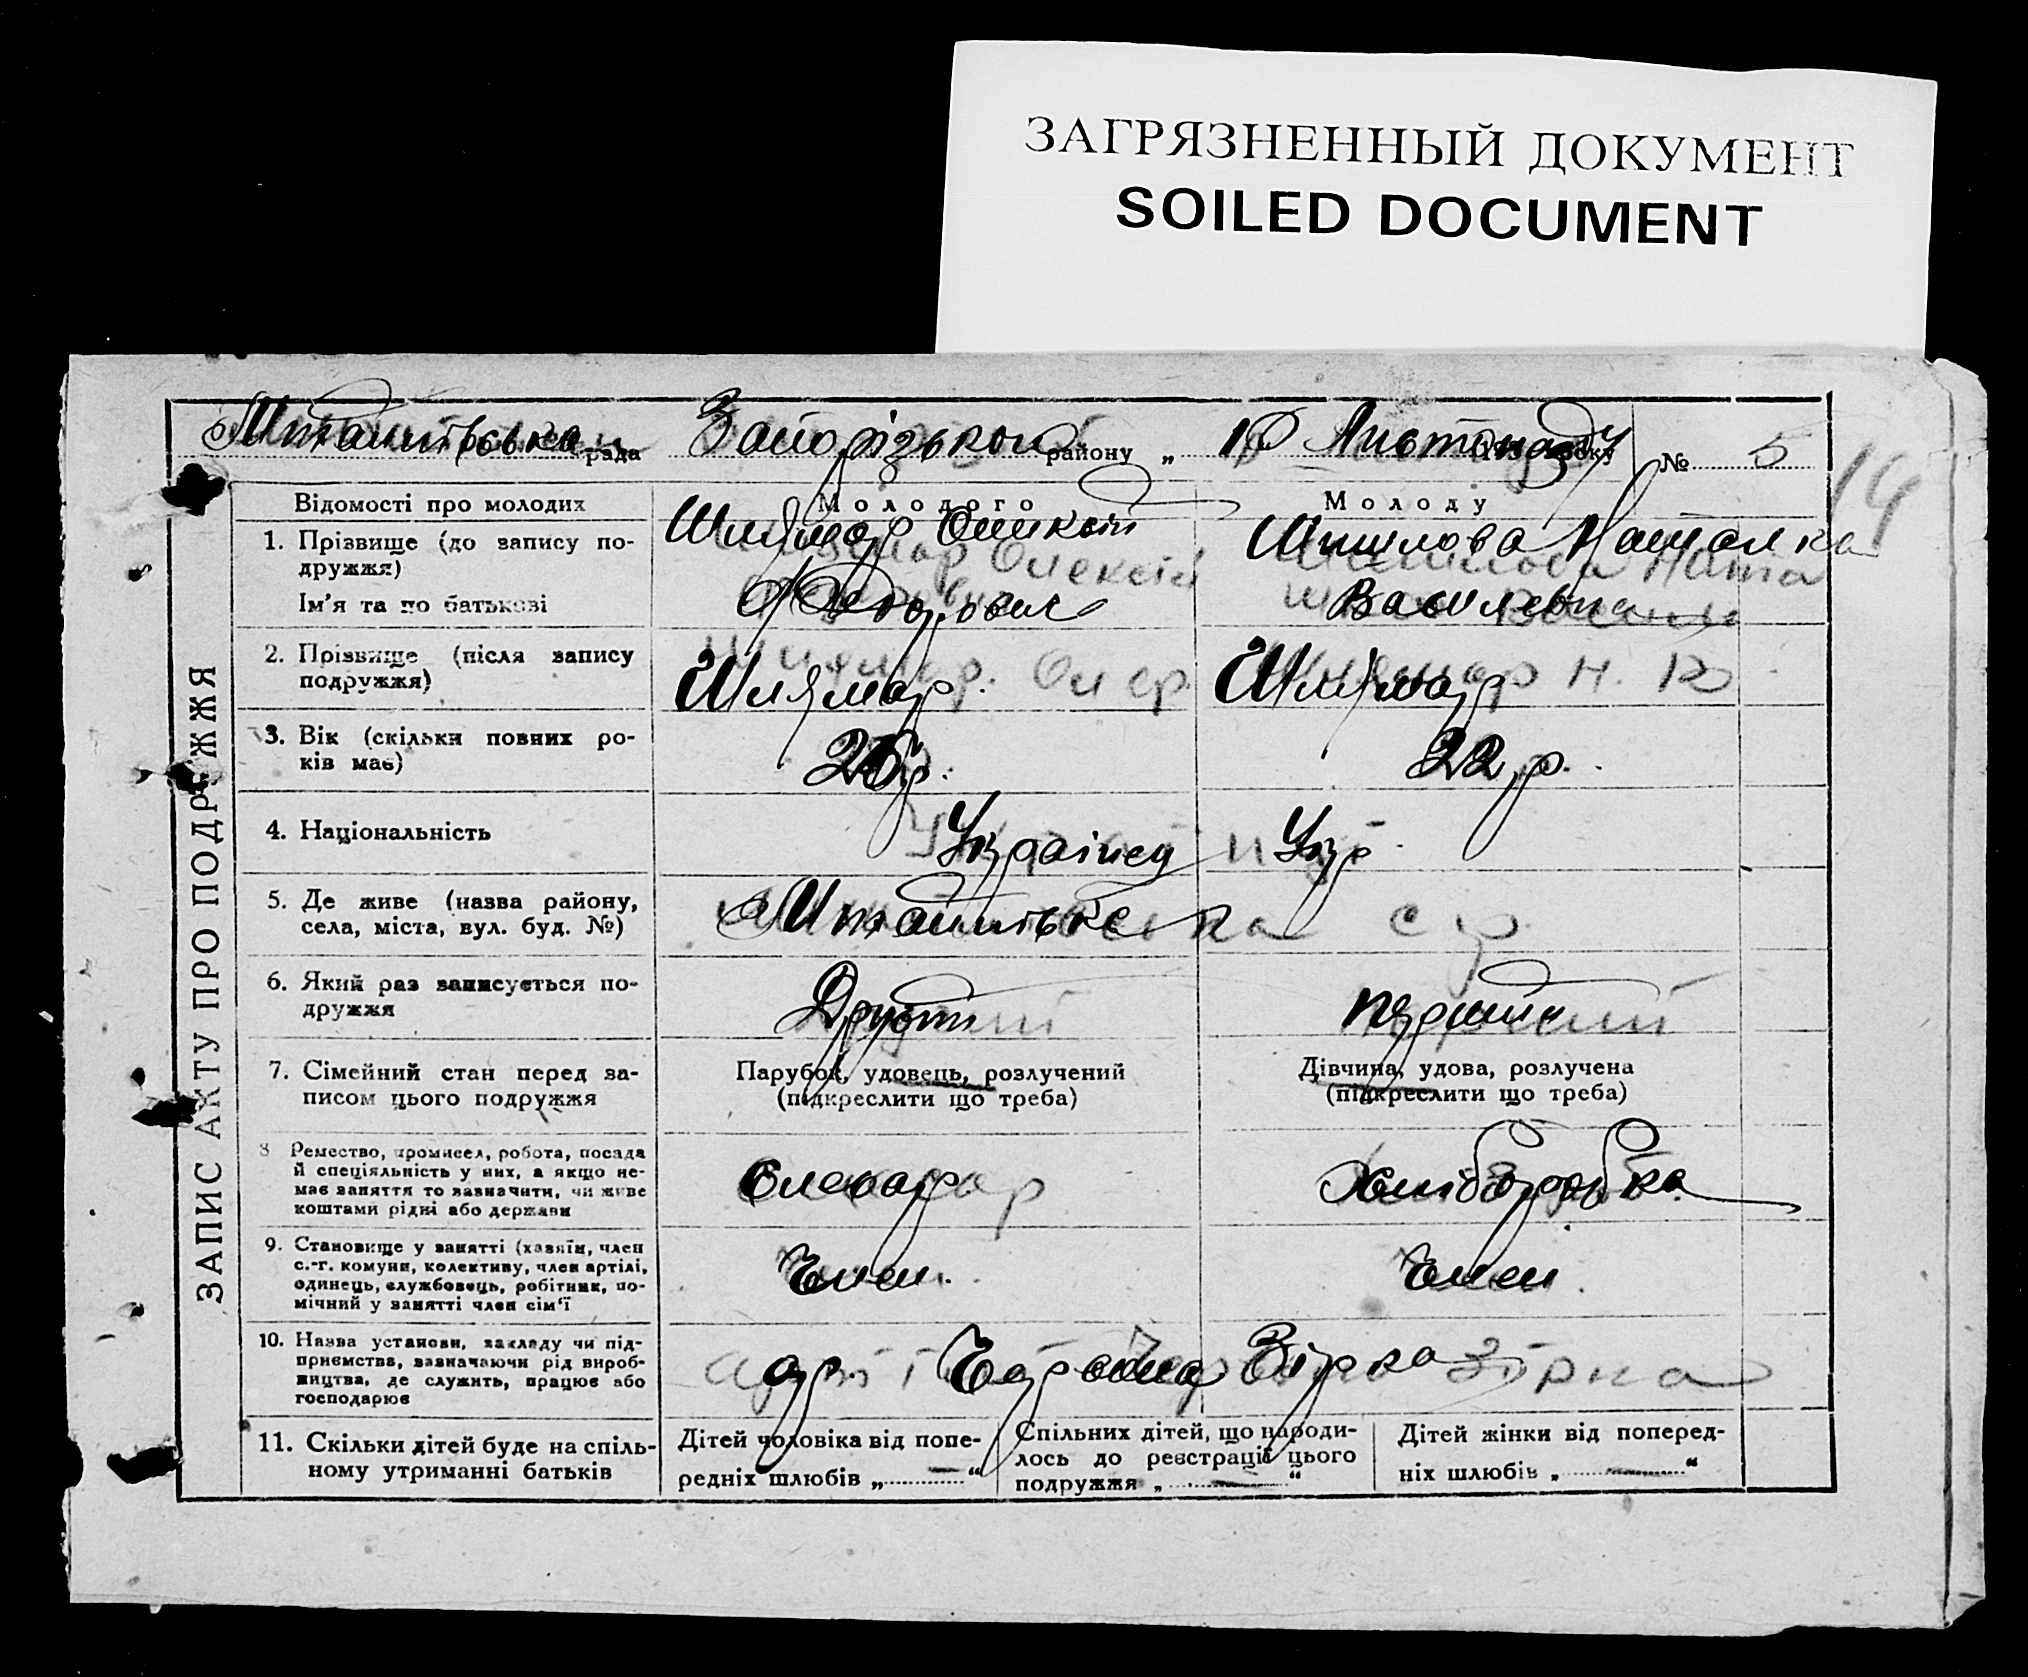 ЗАГРЯЗНЕННЫЙ ДОКУМЕНТ
SOILED DOCUMENT
рада Запорізького району „ 10 Листопаду 193 року № 5
14
ЗАПИС АКТУ ПРО ПОДРУЖЖЯ
Відомості про молодих
Молодого
Молоду
1. Прізвище (до запису по-
дружжя)
Ім'я та по батькові
Шлямар Олексій
Федорович
Шишлова Наталка
Василевна
2. Прізвище (після запису
подружжя)
Шлямар
Шлямар
3. Вік (скільки повних ро-
ків має)
26 р.
22 р.
4. Національність
Українец
Укр
5. Де живе (назва району,
села, міста, вул. буд. №)
6. Який раз записується по-
дружжя
Другий
перший
7. Сімейний стан перед за-
писом цього подружжя
Парубок, удовець, розлучений
(підкреслити що треба)
Дівчина, удова, розлучена
(підкреслити що треба)
8 Ремество, промисел, робота, посада
й спеціяльність у них, а якщо не-
має заняття то зазначити, чи живе
коштами рідні або держави
Слесар
Хліборобка
9. Становище у занятті (хазяїн, член
с.-г. комуни, колективу, член артілі,
одинець, службовець, робітник, по-
мічний у занятті член сім'ї
Член.
Член
10. Назва установи, закладу чи під-
приємства, зазначаючи рід вироб-
ництва, де служить, працює або
господарює
ар. Червона Зірка
11. Скільки дітей буде на спіль-
ному утриманні батьків
Дітей чоловіка від попе-
редніх шлюбів „ — “
Спільних дітей, що народи-
лось до реєстрації цього
подружжя „ — “
Дітей жінки від поперед-
ніх шлюбів „ — “